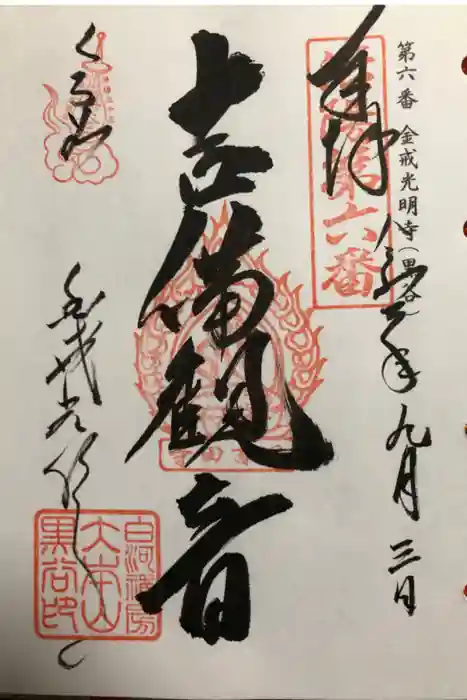 第六番 金戒光明寺(黒谷)
奉拝
洛陽第六番
九月三日
吉備観音
吉田寺
くろ谷
金戒光明寺
白河禅房
大本山
黒谷印